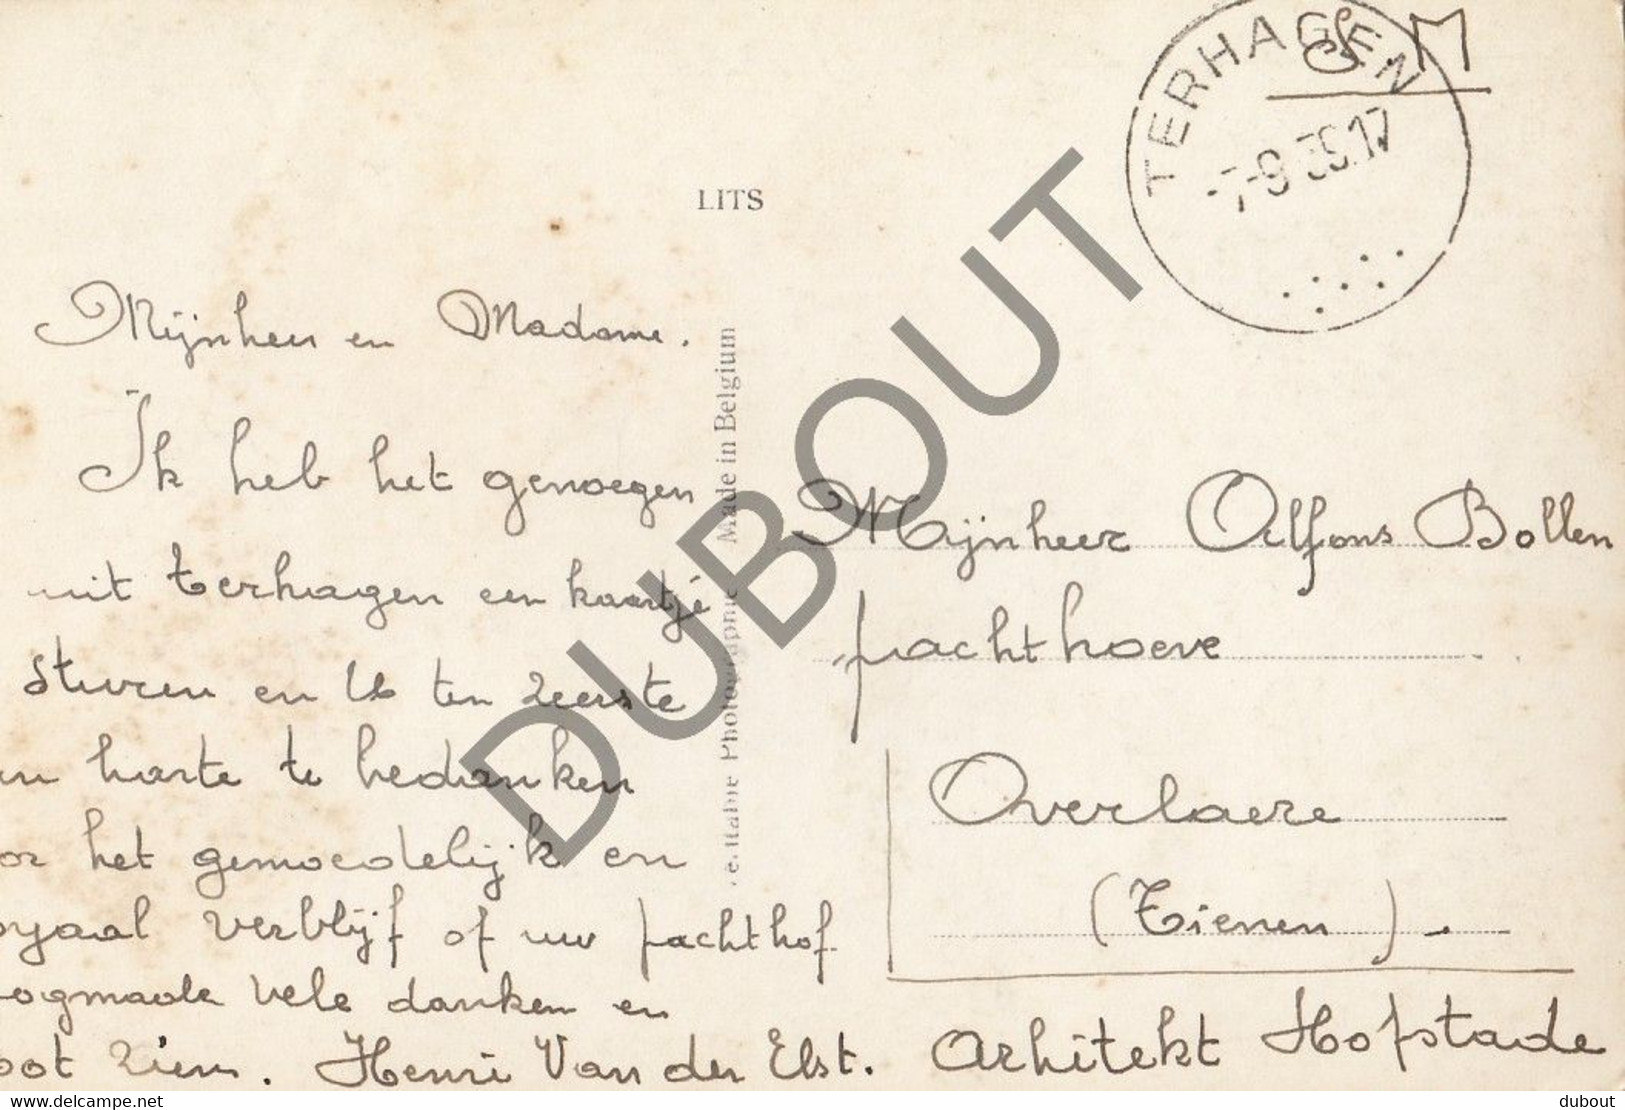 S. M
TERHAGEN
-7-9 39.17
LITS
Mijnheer en Madame.
Ik heb het genoegen
uit terhagen een kaartje
sturen en U ten zeerste
harte te bedanken
het gemoedelijk en
verblijf of uw pachthof
vele danken en
zien. Henri Van der Elst. Arhitekt Hofstade
Made in Belgium
Photographie
Mijnheer Alfons Bollen
pachthoeve
Overlaere
(Tienen).
DUBOUT
delcampe.net
dubout